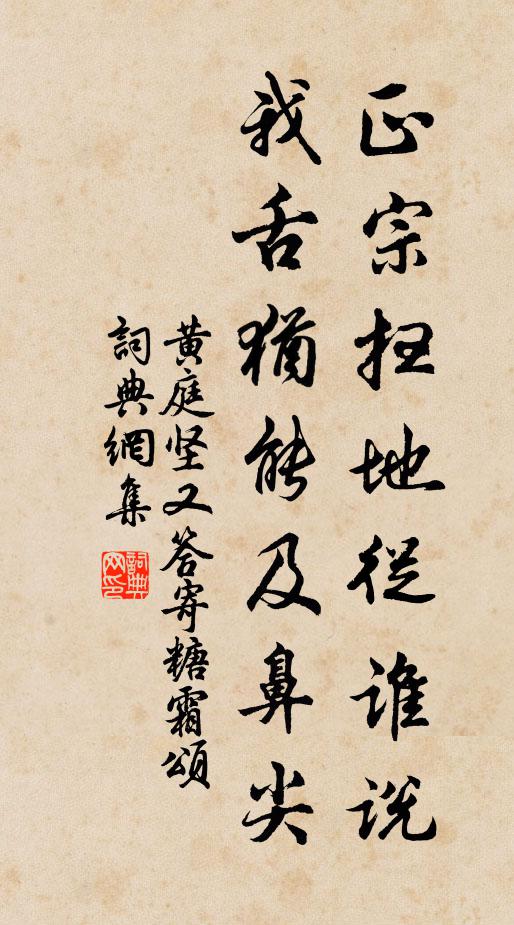 正宗扫地從谁説
我舌猶能及鼻尖
黄庭坚又答寄糖霜頌
詞典網集
詞典网印